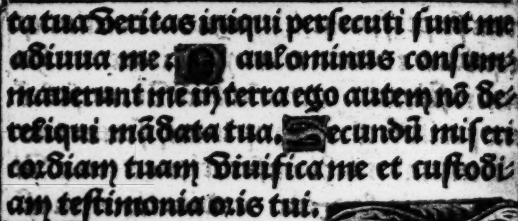 ta tua veritas iniqui persecuti sunt me
adiuua me: P aulominus consum-
mauerunt me in terra ego autem nō de-
reliqui mādata tua. Secundū miseri
cordiam tuam viuifica me et custodi-
am testimonia oris tui.